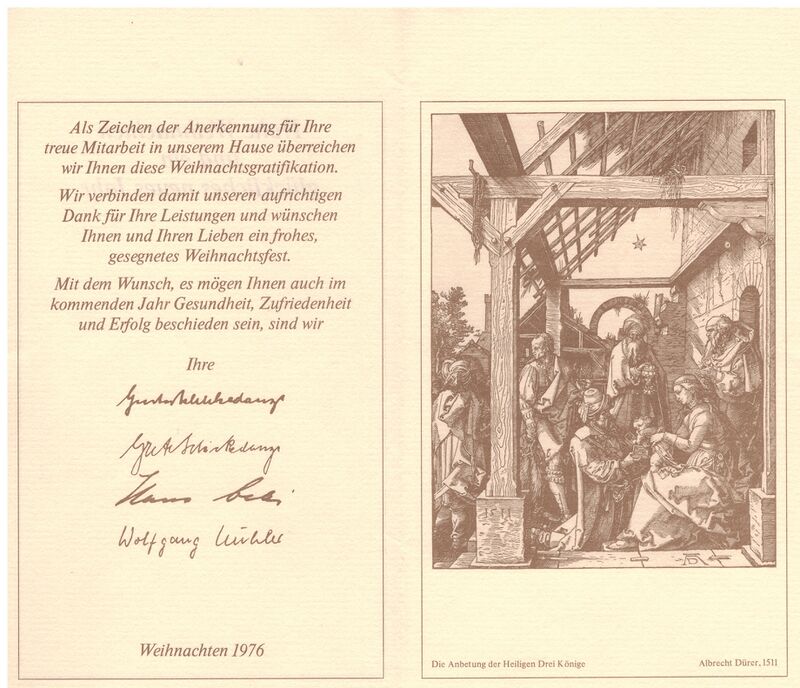 Als Zeichen der Anerkennung für Ihre
treue Mitarbeit in unserem Hause überreichen
wir Ihnen diese Weihnachtsgratifikation.
Wir verbinden damit unseren aufrichtigen
Dank für Ihre Leistungen und wünschen
Ihnen und Ihren Lieben ein frohes,
gesegnetes Weihnachtsfest.
Mit dem Wunsch, es mögen Ihnen auch im
kommenden Jahr Gesundheit, Zufriedenheit
und Erfolg beschieden sein, sind wir
Ihre
Grete Schickedanz
Hans
Wolfgang
Weihnachten 1976
1511
AD
Die Anbetung der Heiligen Drei Könige
Albrecht Dürer, 1511